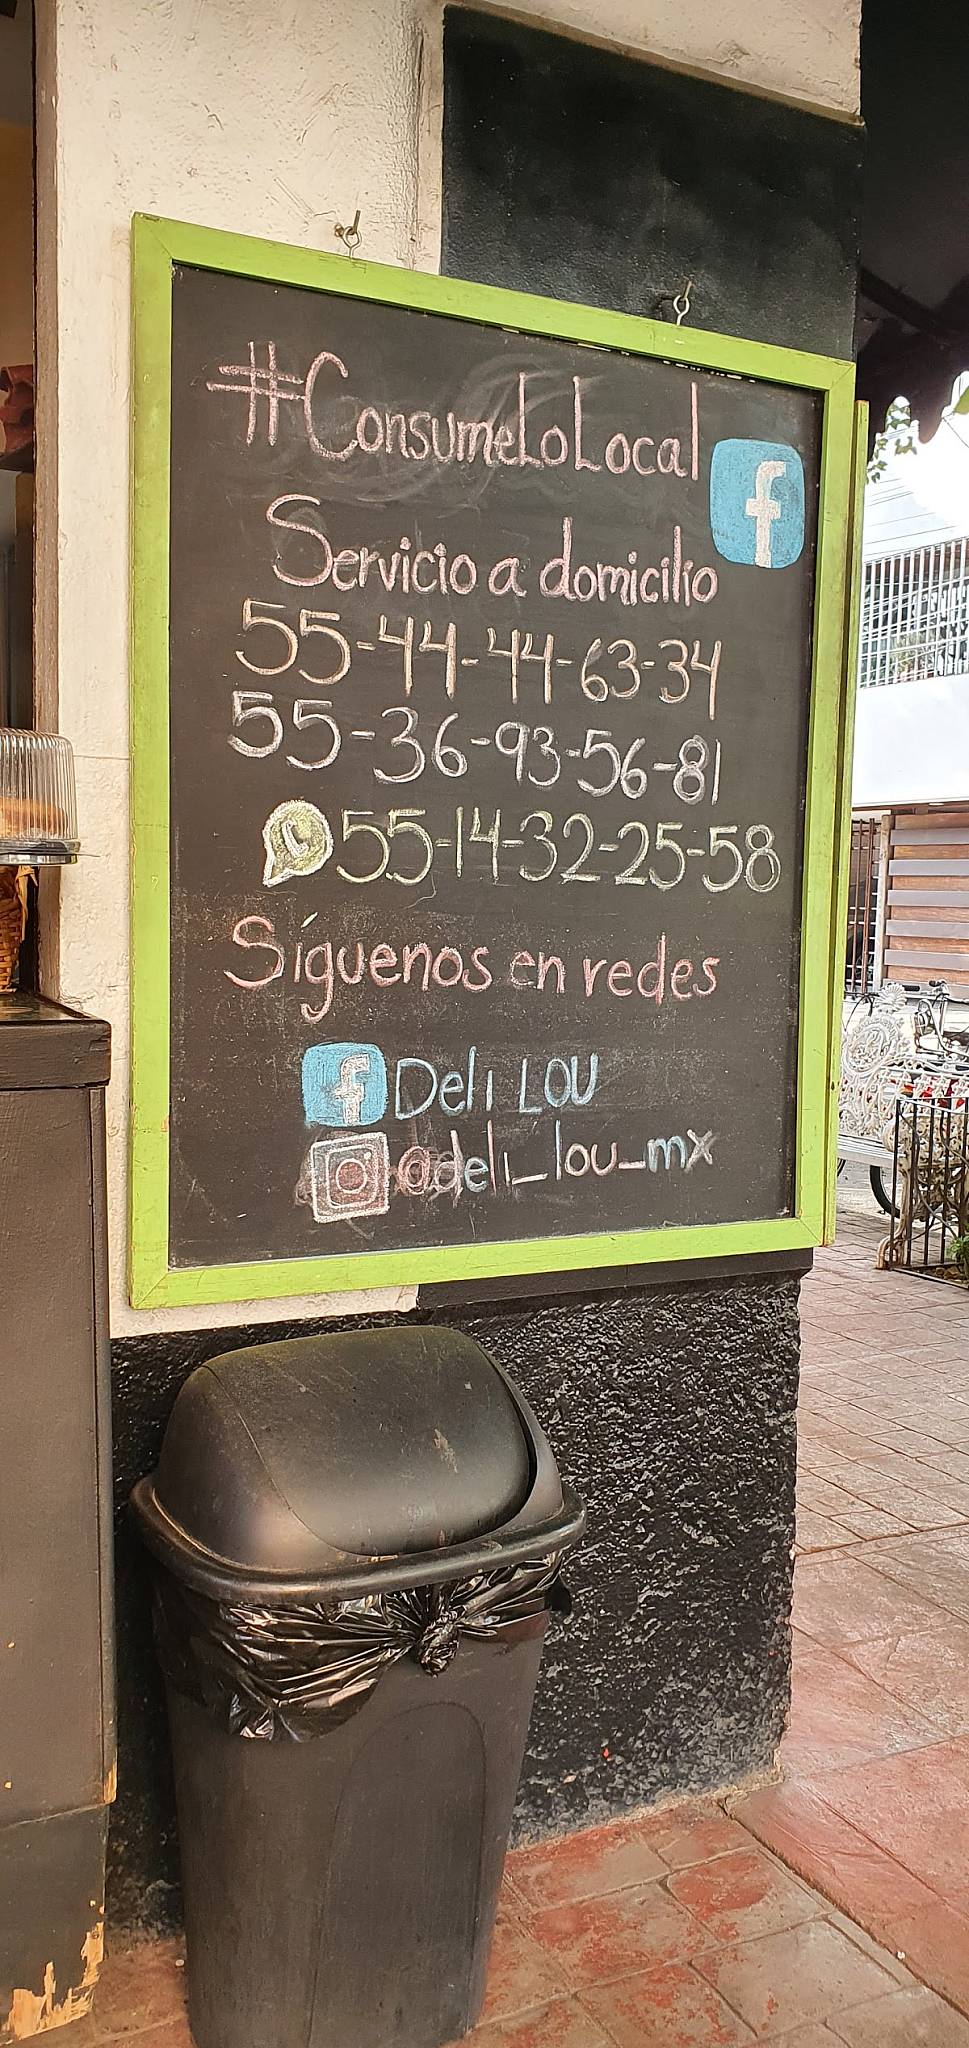 #ConsumeLoLocal
f
Servicio a domicilio
55-44-44-63-34
55-36-93-56-81
55-14-32-25-58
Síguenos en redes
f Deli LOU
@deli_lou_mx